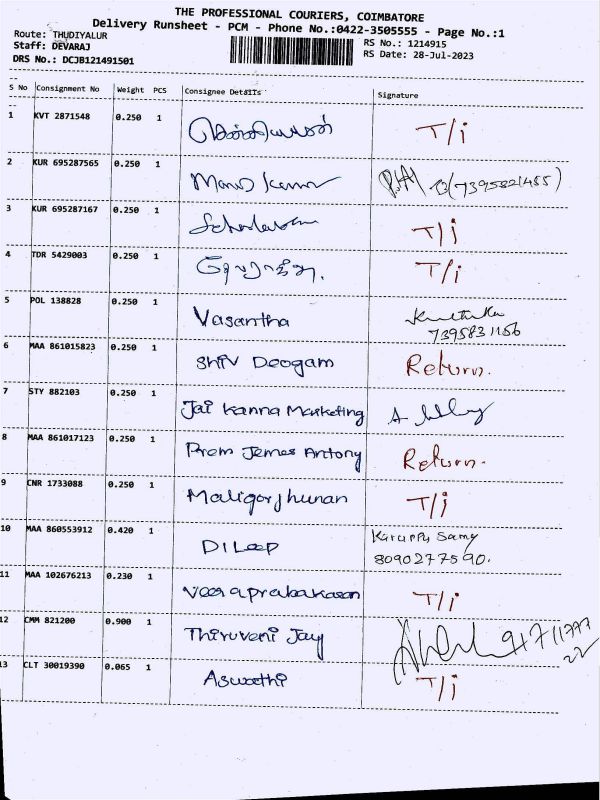 THE PROFESSIONAL COURIERS, COIMBATORE
Delivery Runsheet - PCM - Phone No.:0422-3505555 - Page No.:1
Route: THUDIYALUR
Staff: DEVARAJ
DRS No.: DCJB121491501
RS No.: 1214915
RS Date: 28-Jul-2023
S No Consignment No Weight PCS Consignee Details Signature
1 KVT 2871548 0.250 1 T/i
2 KUR 695287565 0.250 1 Kumar
3 KUR 695287167 0.250 1 T/i
4 TDR 5429003 0.250 1 T/i
5 POL 138828 0.250 1 Vasantha
7395831156
6 MAA 861015823 0.250 1 Shiv Deogam Return.
7 STY 882103 0.250 1 Jai Kanna Marketing
8 MAA 861017123 0.250 1 Prem James Antony Return.
9 CNR 1733088 0.250 1 Maligarjhunan T/i
10 MAA 860553912 0.420 1 DILeep Karuppu Samy
8090277590.
11 MAA 102676213 0.230 1 Veeraprabakaran T/i
12 CMM 821200 0.900 1 Thiruveni Jay
13 CLT 30019390 0.065 1 Aswathi T/i